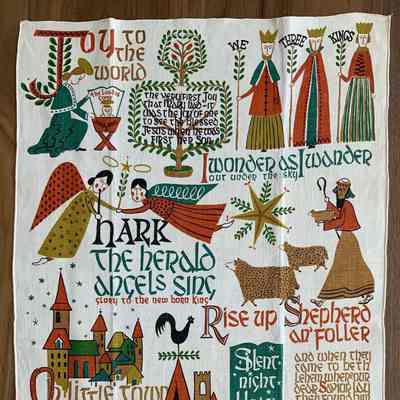 Joy to
the
world
The Lord is
Come
the very first Joy
that Mary had - it
was the joy of one
to see the blessed
Jesus when he was
first her Son
WE THREE KINGS
I wonder as I wander
out under the sky
HARK
the herald
angels sing
Glory to the new born King
Rise up Shepherd
an' foller
O little town
Silent
night
and when they
came to beth
lehem where our
dear Savior lay
they found him